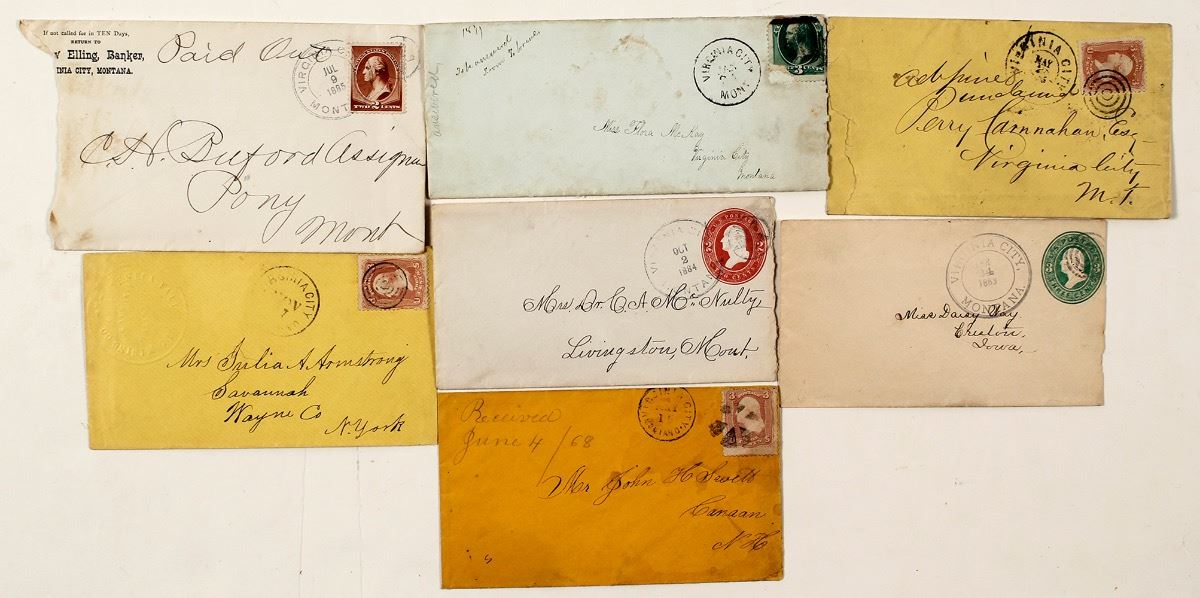 If not called for in TEN Days,
RETURN TO
y Elling, Banker,
INIA CITY, MONTANA.
Paid Out
VIRGINIA C
JUL
9
1885
MONT
TWO 2 CENTS
C. H. Buford Assignee
Pony
Mont
answered
VIRGINIA CITY
MONT
3 CENTS
Miss Flora McKay
Virginia City
Montana
VIRGINIA CITY
MAY
Perry Cannahan, Esq
Virginia City
M. T.
GINIA CITY
NOV
Mrs Julia A Armstrong
Savannah
Wayne Co
N. York
VIRGINIA CITY
OCT
2
1884
MONTANA
U.S. POSTAGE
TWO CENTS
Mrs. Dr. C. A. McNulty
Livingston, Mont.
VIRGINIA CITY,
14
1883
MONTANA.
Miss Daisy Way
Creston,
Iowa,
Received
June 4/68
GINIA CITY
3 3
Mr John H Swett
Canaan
N. H